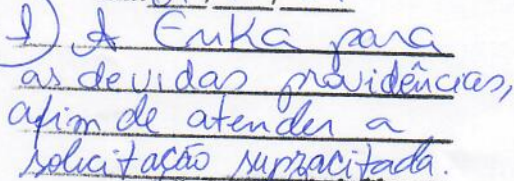 1) A Erika para
as devidas providências,
afim de atender a
solicitação supracitada.